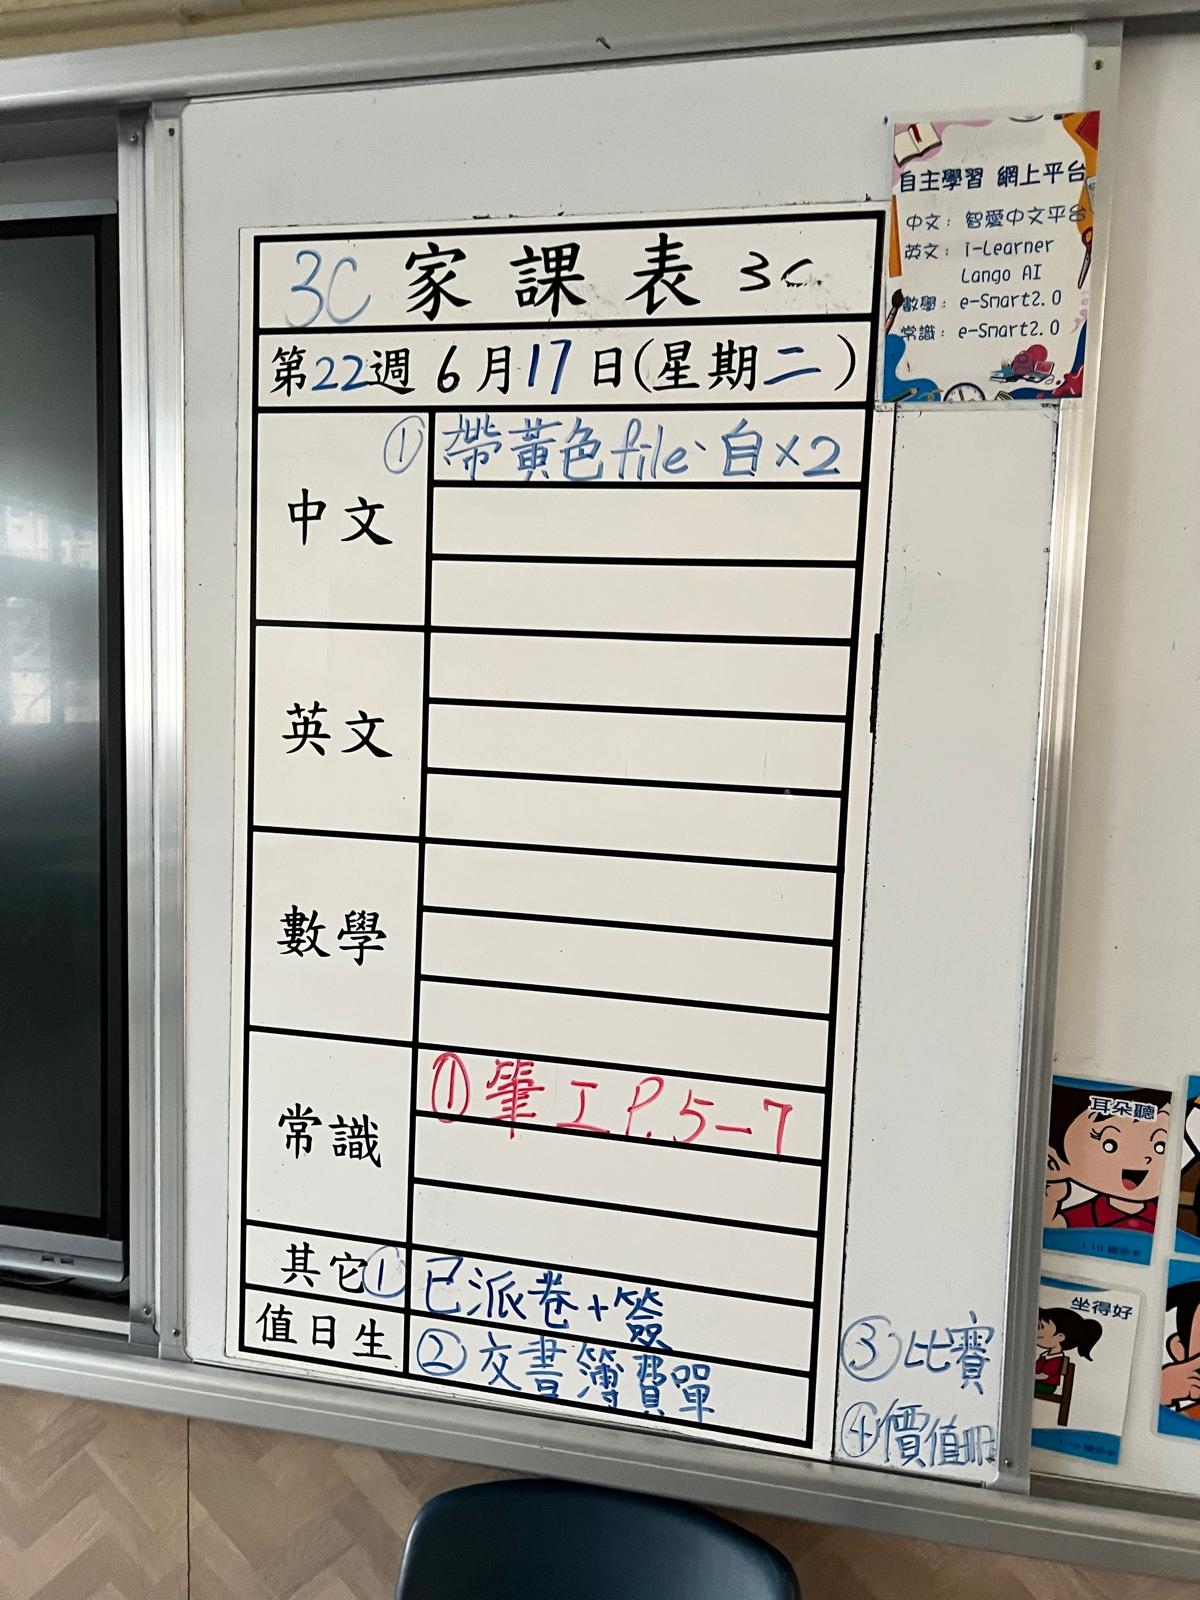 自主學習 網上平台
中文：智愛中文平台
英文：i-Learner
Lango AI
數學：e-Smart2.0
常識：e-Smart2.0
3C 家課表 3C
第22週 6月17日(星期二)
中文
① 帶黃色file、自x2
英文
數學
常識
① 筆工P.5-7
其它
① 已派卷+簽
值日生
② 交書簿費單
③ 比賽
④ 價值冊
耳朵聽
坐得好